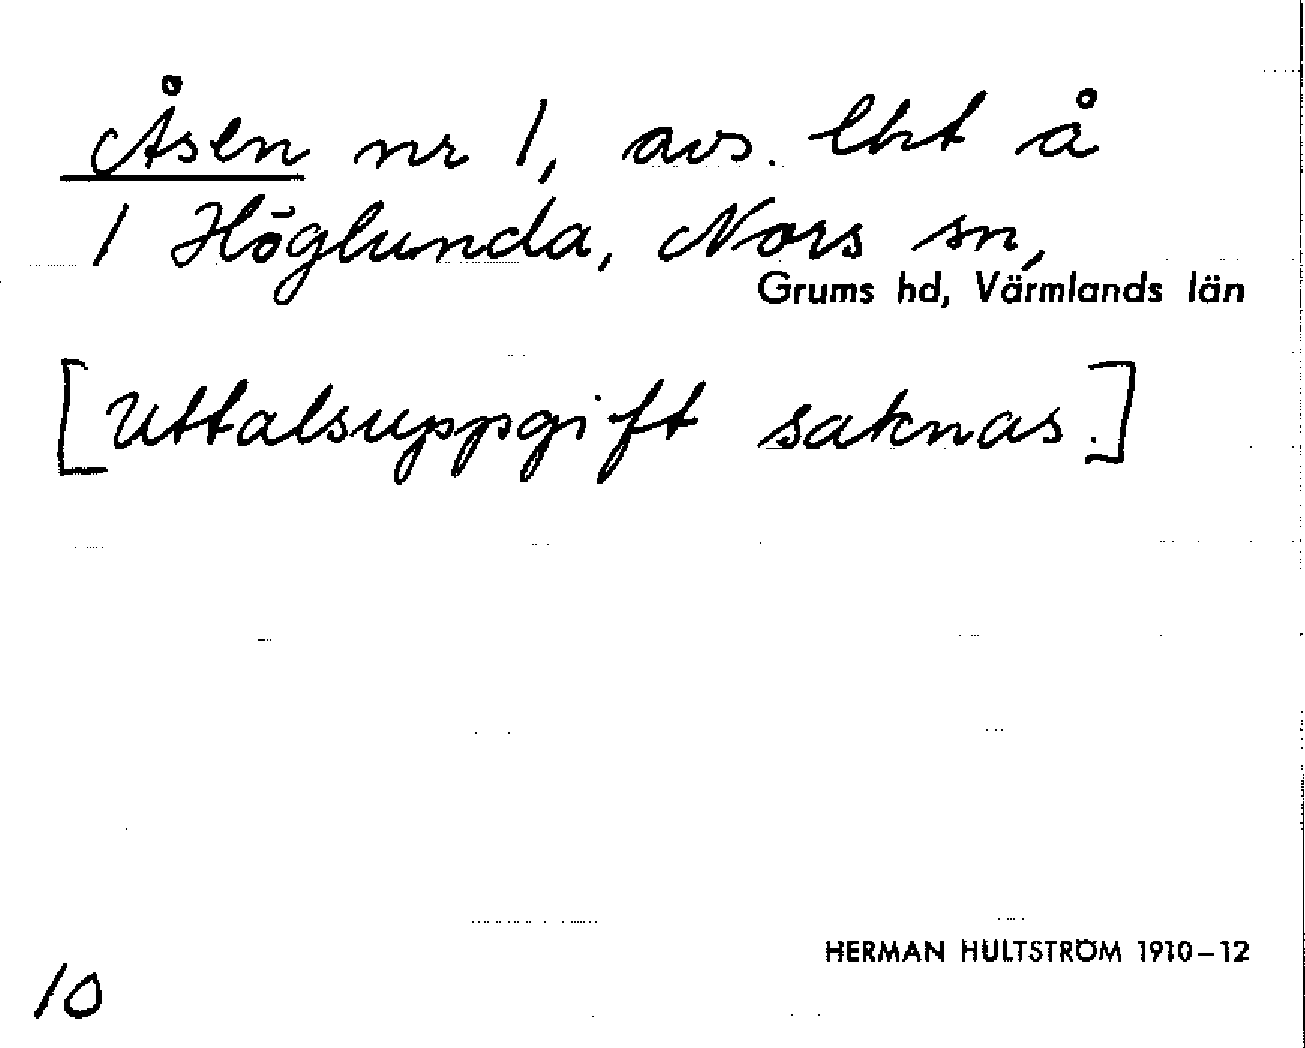 Åsen nr 1, avs. lht å
1 Höglunda, Nors sn,
Grums hd, Värmlands län
[Uttalsuppgift saknas.]
HERMAN HULTSTRÖM 1910–12
10